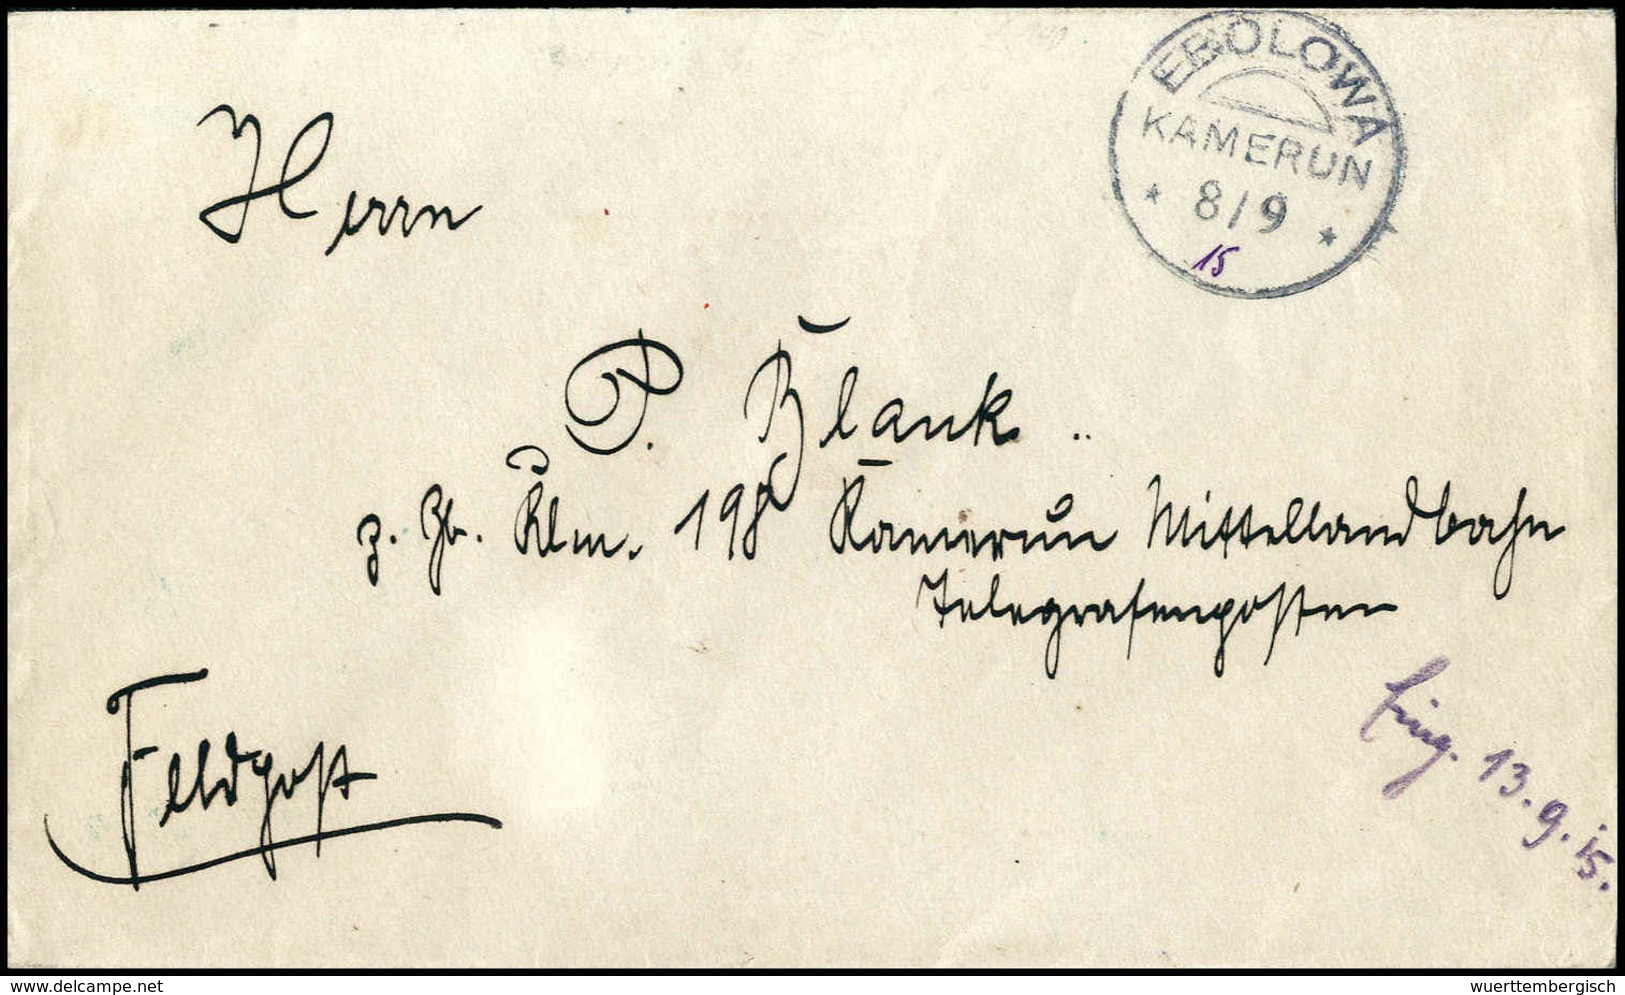 EBOLOWA
KAMERUN
* 8/9 *
15
Herrn
P. Blank
z. Zt. Klm. 198 Kamerun Mittellandbahn
Telegrafenposten
Feldpost
Eing. 13.9.15.
www.delcampe.net
wuerttembergisch